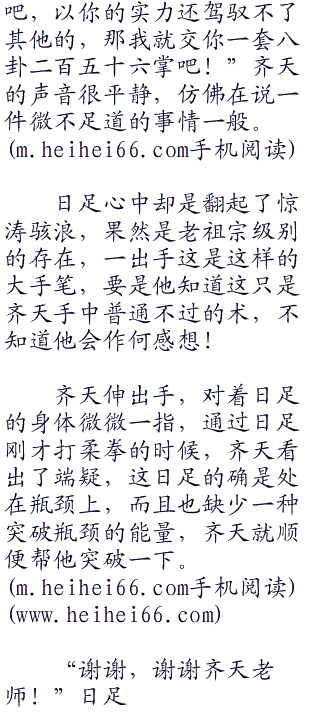 吧，以你的实力还驾驭不了
其他的，那我就交你一套八
卦二百五十六掌吧！”齐天
的声音很平静，仿佛在说一
件微不足道的事情一般。
(m.heihei66.com手机阅读)
日足心中却是翻起了惊
涛骇浪，果然是老祖宗级别
的存在，一出手这是这样的
大手笔，要是他知道这只是
齐天手中普通不过的术，不
知道他会作何感想！
齐天伸出手，对着日足
的身体微微一指，通过日足
刚才打柔拳的时候，齐天看
出了端疑，这日足的确是处
在瓶颈上，而且也缺少一种
突破瓶颈的能量，齐天就顺
便帮他突破一下。
(m.heihei66.com手机阅读)
(www.heihei66.com)
“谢谢，谢谢齐天老
师！”日足